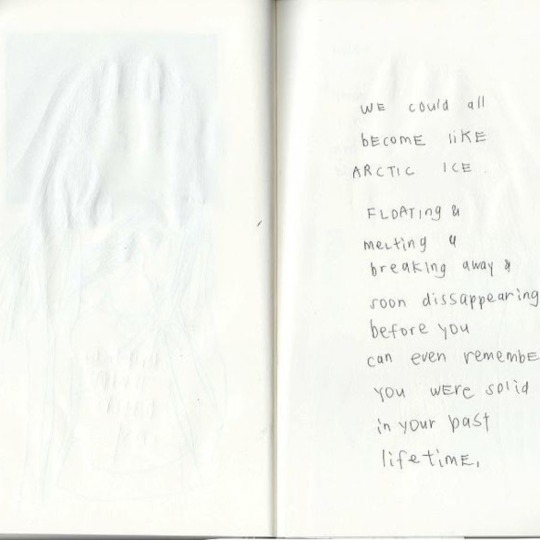 WE could all
bEcomE liKE
ARCTIC ICE
FLOATIng &
meLting &
breaking away &
soon dissappearing
before you
can even remembE
you wERe solid
in your past
lifetimE.